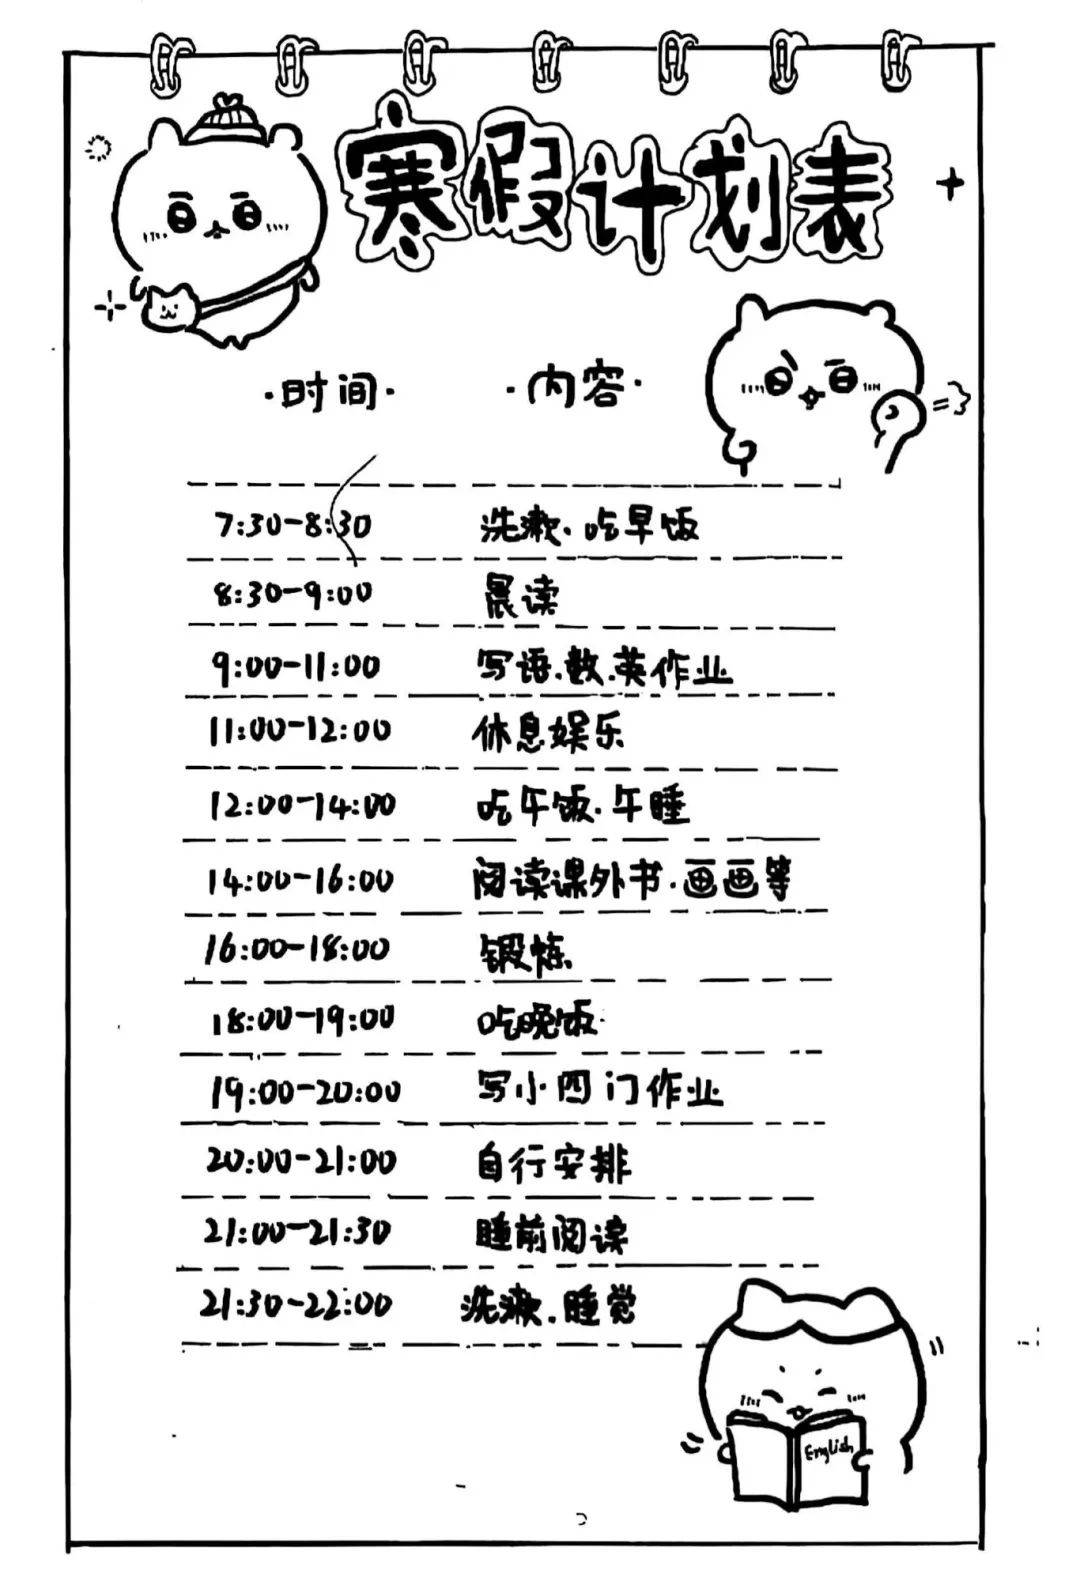 寒假计划表
·时间· ·内容·
7:30-8:30 洗漱·吃早饭
8:30-9:00 晨读
9:00-11:00 写语.数.英作业
11:00-12:00 休息娱乐
12:00-14:00 吃午饭·午睡
14:00-16:00 阅读课外书·画画等
16:00-18:00 锻炼
18:00-19:00 吃晚饭
19:00-20:00 写小四门作业
20:00-21:00 自行安排
21:00-21:30 睡前阅读
21:30-22:00 洗漱.睡觉
English